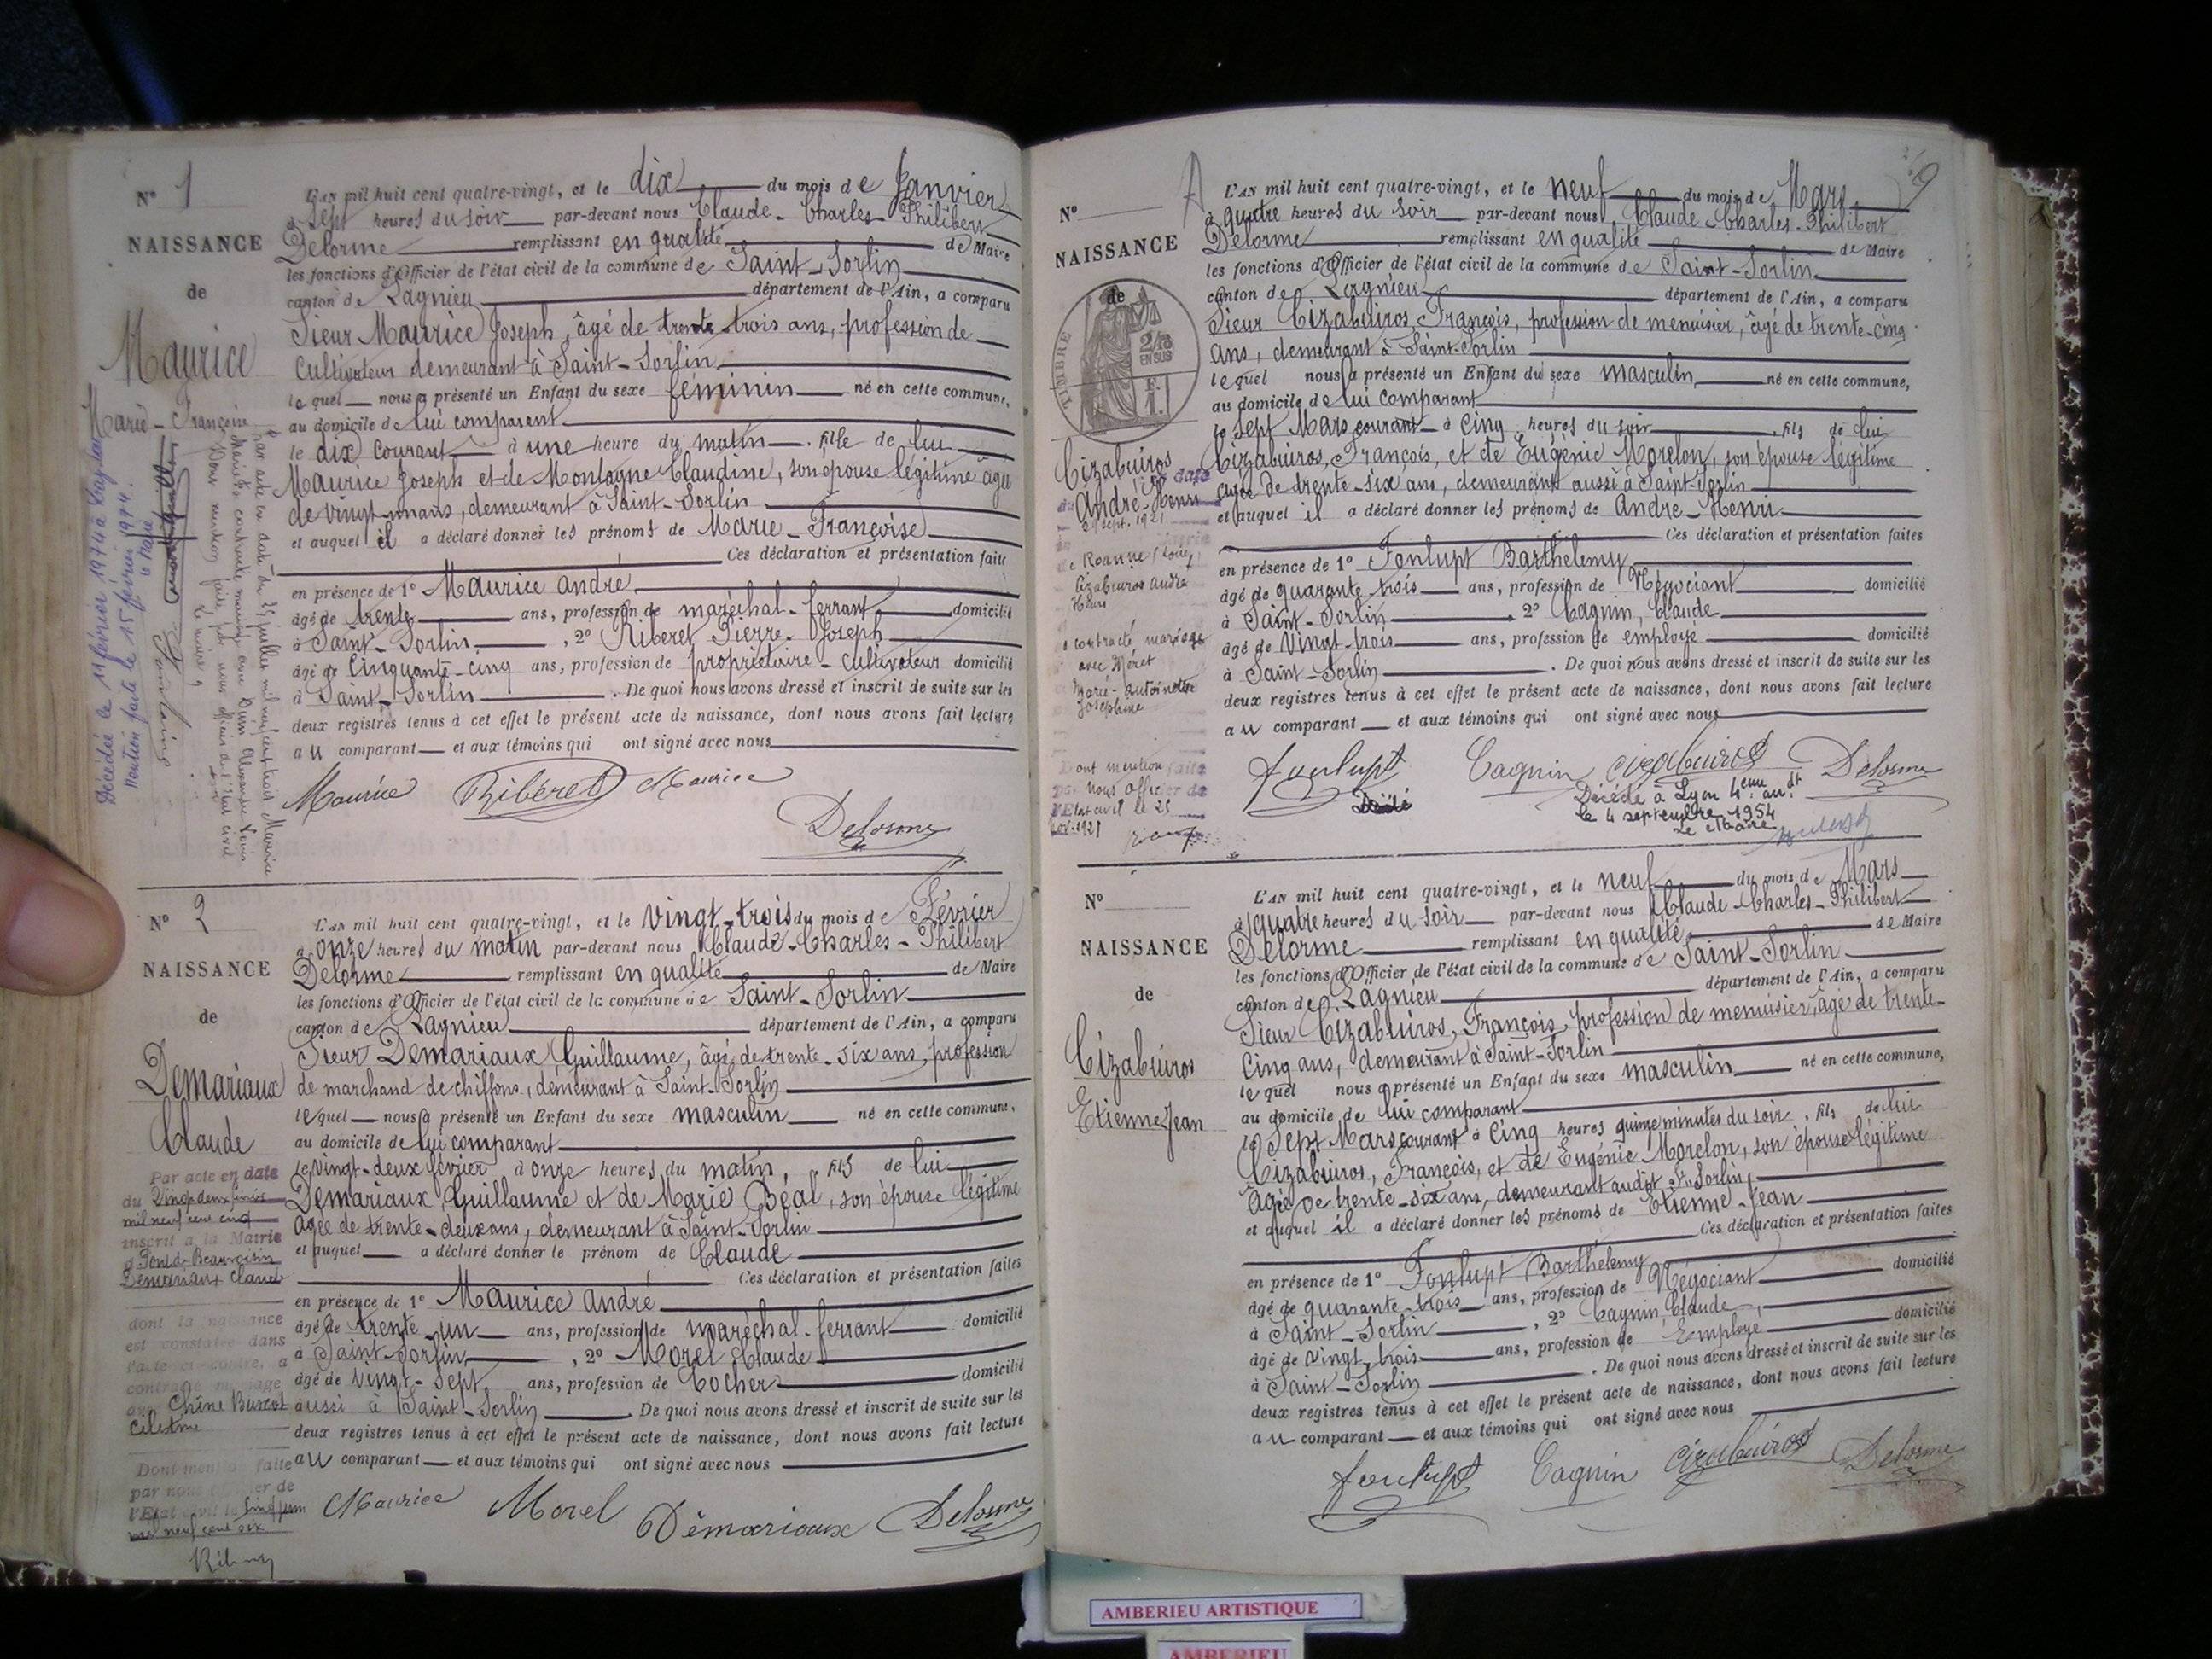 N° 1
NAISSANCE
de
Maurice
Marie-Françoise
L'AN mil huit cent quatre-vingt, et le dix du mois de Janvier
à sept heures du soir par-devant nous Claude-Charles-Philibert
Delorme remplissant en qualité de Maire
les fonctions d'Officier de l'état civil de la commune de Saint-Sorlin
canton de Lagnieu département de l'Ain, a comparu
Sieur Maurice Joseph, âgé de trente-trois ans, profession de
Cultivateur demeurant à Saint-Sorlin
lequel nous a présenté un Enfant du sexe féminin né en cette commune,
au domicile de lui comparant
le dix courant à une heure du matin. fille de lui
Maurice Joseph et de Montagne Claudine, son épouse légitime âgée
de vingt ans, demeurant à Saint-Sorlin
et auquel il a déclaré donner les prénoms de Marie-Françoise
Ces déclaration et présentation faites
en présence de 1° Maurice André
âgé de trente ans, profession de maréchal-ferrant domicilié
à Saint-Sorlin, 2° Riberet Pierre-Joseph
âgé de Cinquante-cinq ans, profession de propriétaire-cultivateur domicilié
à Saint-Sorlin. De quoi nous avons dressé et inscrit de suite sur les
deux registres tenus à cet effet le présent acte de naissance, dont nous avons fait lecture
au comparant et aux témoins qui ont signé avec nous
Maurice Riberet Maurice
Delorme
Décédée le 11 février 1974 à
Mention faite le 15 février 1974.
le Maire
N° 2
NAISSANCE
de
Demariaux
Claude
Par acte en date
du Vingt deux
mil neuf cent cinq
inscrit à la Mairie
d Pont de Beauvoisin
Demariaux Claude
dont la naissance
est constatée dans
l'acte ci-contre, a
contracté mariage
avec Chêne Buscot
Célestine
Dont mention faite
par nous officier de
l'Etat civil le
mil neuf cent six
L'AN mil huit cent quatre-vingt, et le vingt-trois du mois de Février
à onze heures du matin par-devant nous Claude-Charles-Philibert
Delorme remplissant en qualité de Maire
les fonctions d'Officier de l'état civil de la commune de Saint-Sorlin
canton de Lagnieu département de l'Ain, a comparu
Sieur Demariaux Guillaume, âgé de trente-six ans, profession
de marchand de chiffons, demeurant à Saint-Sorlin
lequel nous a présenté un Enfant du sexe masculin né en cette commune,
au domicile de lui comparant
le vingt-deux février à onze heures du matin, fils de lui
Demariaux Guillaume et de Marie Béal, son épouse légitime
âgée de trente-deux ans, demeurant à Saint-Sorlin
et auquel a déclaré donner le prénom de Claude
Ces déclaration et présentation faites
en présence de 1° Maurice André
âgé de trente-un ans, profession de maréchal-ferrant domicilié
à Saint-Sorlin, 2° Morel Claude
âgé de Vingt-sept ans, profession de Cocher domicilié
aussi à Saint-Sorlin. De quoi nous avons dressé et inscrit de suite sur les
deux registres tenus à cet effet le présent acte de naissance, dont nous avons fait lecture
au comparant et aux témoins qui ont signé avec nous
Maurice Morel Démariaux Delorme
9
N°
NAISSANCE
de
TIMBRE
2/10
EN SUS
F.
1.
Cizabuiros
André-Henri
sept. 1921
de Roanne (Loire)
Cizabuiros André
Henri
a contracté mariage
avec Méret
Marie-Antoinette
Joséphine
Dont mention faite
par nous officier de
l'Etat civil le 25
1921
L'AN mil huit cent quatre-vingt, et le neuf du mois de Mars
à quatre heures du soir par-devant nous, Claude-Charles-Philibert
Delorme remplissant en qualité de Maire
les fonctions d'Officier de l'état civil de la commune de Saint-Sorlin
canton de Lagnieu département de l'Ain, a comparu
Sieur Cizabuiros, François, profession de menuisier, âgé de trente-cinq
ans, demeurant à Saint-Sorlin
lequel nous a présenté un Enfant du sexe masculin né en cette commune,
au domicile de lui comparant
le sept Mars courant à cinq heures du soir, fils de lui
Cizabuiros, François, et de Eugénie Morelon, son épouse légitime
âgée de trente-six ans, demeurant aussi à Saint-Sorlin
et auquel il a déclaré donner les prénoms de André-Henri
Ces déclaration et présentation faites
en présence de 1° Fonlupt Barthélemy
âgé de quarante trois ans, profession de Négociant domicilié
à Saint-Sorlin 2° Cagnin, Claude
âgé de Vingt-trois ans, profession de employé domicilié
à Saint-Sorlin. De quoi nous avons dressé et inscrit de suite sur les
deux registres tenus à cet effet le présent acte de naissance, dont nous avons fait lecture
au comparant et aux témoins qui ont signé avec nous
fonlupt Cagnin Cizabuiros Delorme
Décédé à Lyon 4ème
le 4 septembre 1954
Le Maire
N°
NAISSANCE
de
Cizabuiros
Etienne Jean
L'AN mil huit cent quatre-vingt, et le neuf du mois de Mars
à quatre heures du soir par-devant nous Claude-Charles-Philibert
Delorme remplissant en qualité de Maire
les fonctions d'Officier de l'état civil de la commune de Saint-Sorlin
canton de Lagnieu département de l'Ain, a comparu
Sieur Cizabuiros, François, profession de menuisier, âgé de trente-
cinq ans, demeurant à Saint-Sorlin
lequel nous a présenté un Enfant du sexe masculin né en cette commune,
au domicile de lui comparant
le Sept Mars courant à cinq heures quinze minutes du soir, fils de lui
Cizabuiros, François, et de Eugénie Morelon, son épouse légitime
âgée de trente-six ans, demeurant audit St Sorlin,
et auquel il a déclaré donner les prénoms de Etienne-Jean
Ces déclaration et présentation faites
en présence de 1° Fonlupt Barthélemy
âgé de quarante-trois ans, profession de Négociant domicilié
à Saint-Sorlin, 2° Cagnin, Claude,
âgé de vingt trois ans, profession de Employé domicilié
à Saint-Sorlin. De quoi nous avons dressé et inscrit de suite sur les
deux registres tenus à cet effet le présent acte de naissance, dont nous avons fait lecture
au comparant et aux témoins qui ont signé avec nous
fonlupt Cagnin Cizabuiros Delorme
AMBERIEU ARTISTIQUE
AMBERIEU